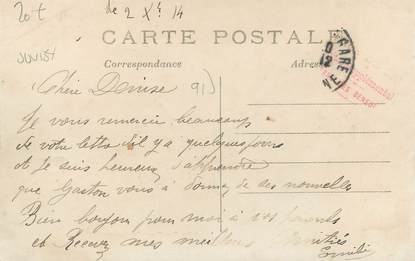 20t de 2 Xbre 14
CARTE POSTALE
Correspondance Adresse
JUVISY
Chère Denise 91
GARE
Je vous remercie beaucoup
de votre lettre d'il y a quelques jours
et Je suis heureux d'apprendre
que Gaston vous à donné de ses nouvelles
Bien bonjour pour moi à vos parents
et Recevez mes meilleures Amitiés
Emile